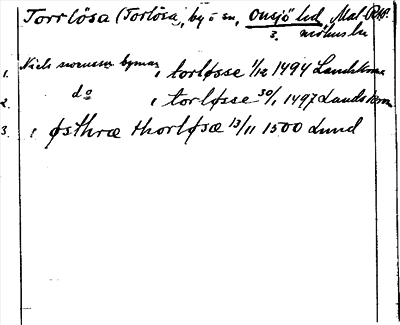 Torrlösa (Torlösa), by o sn, Onsjö hd Mal-
3. möhus ln
1. Niels svenssen byman, i torløsse 1/12 1494 Landskrona
2. do i torløsse 30/1 1497 Landskrona
3. i østhræ thorløsæ 13/11 1500 Lund